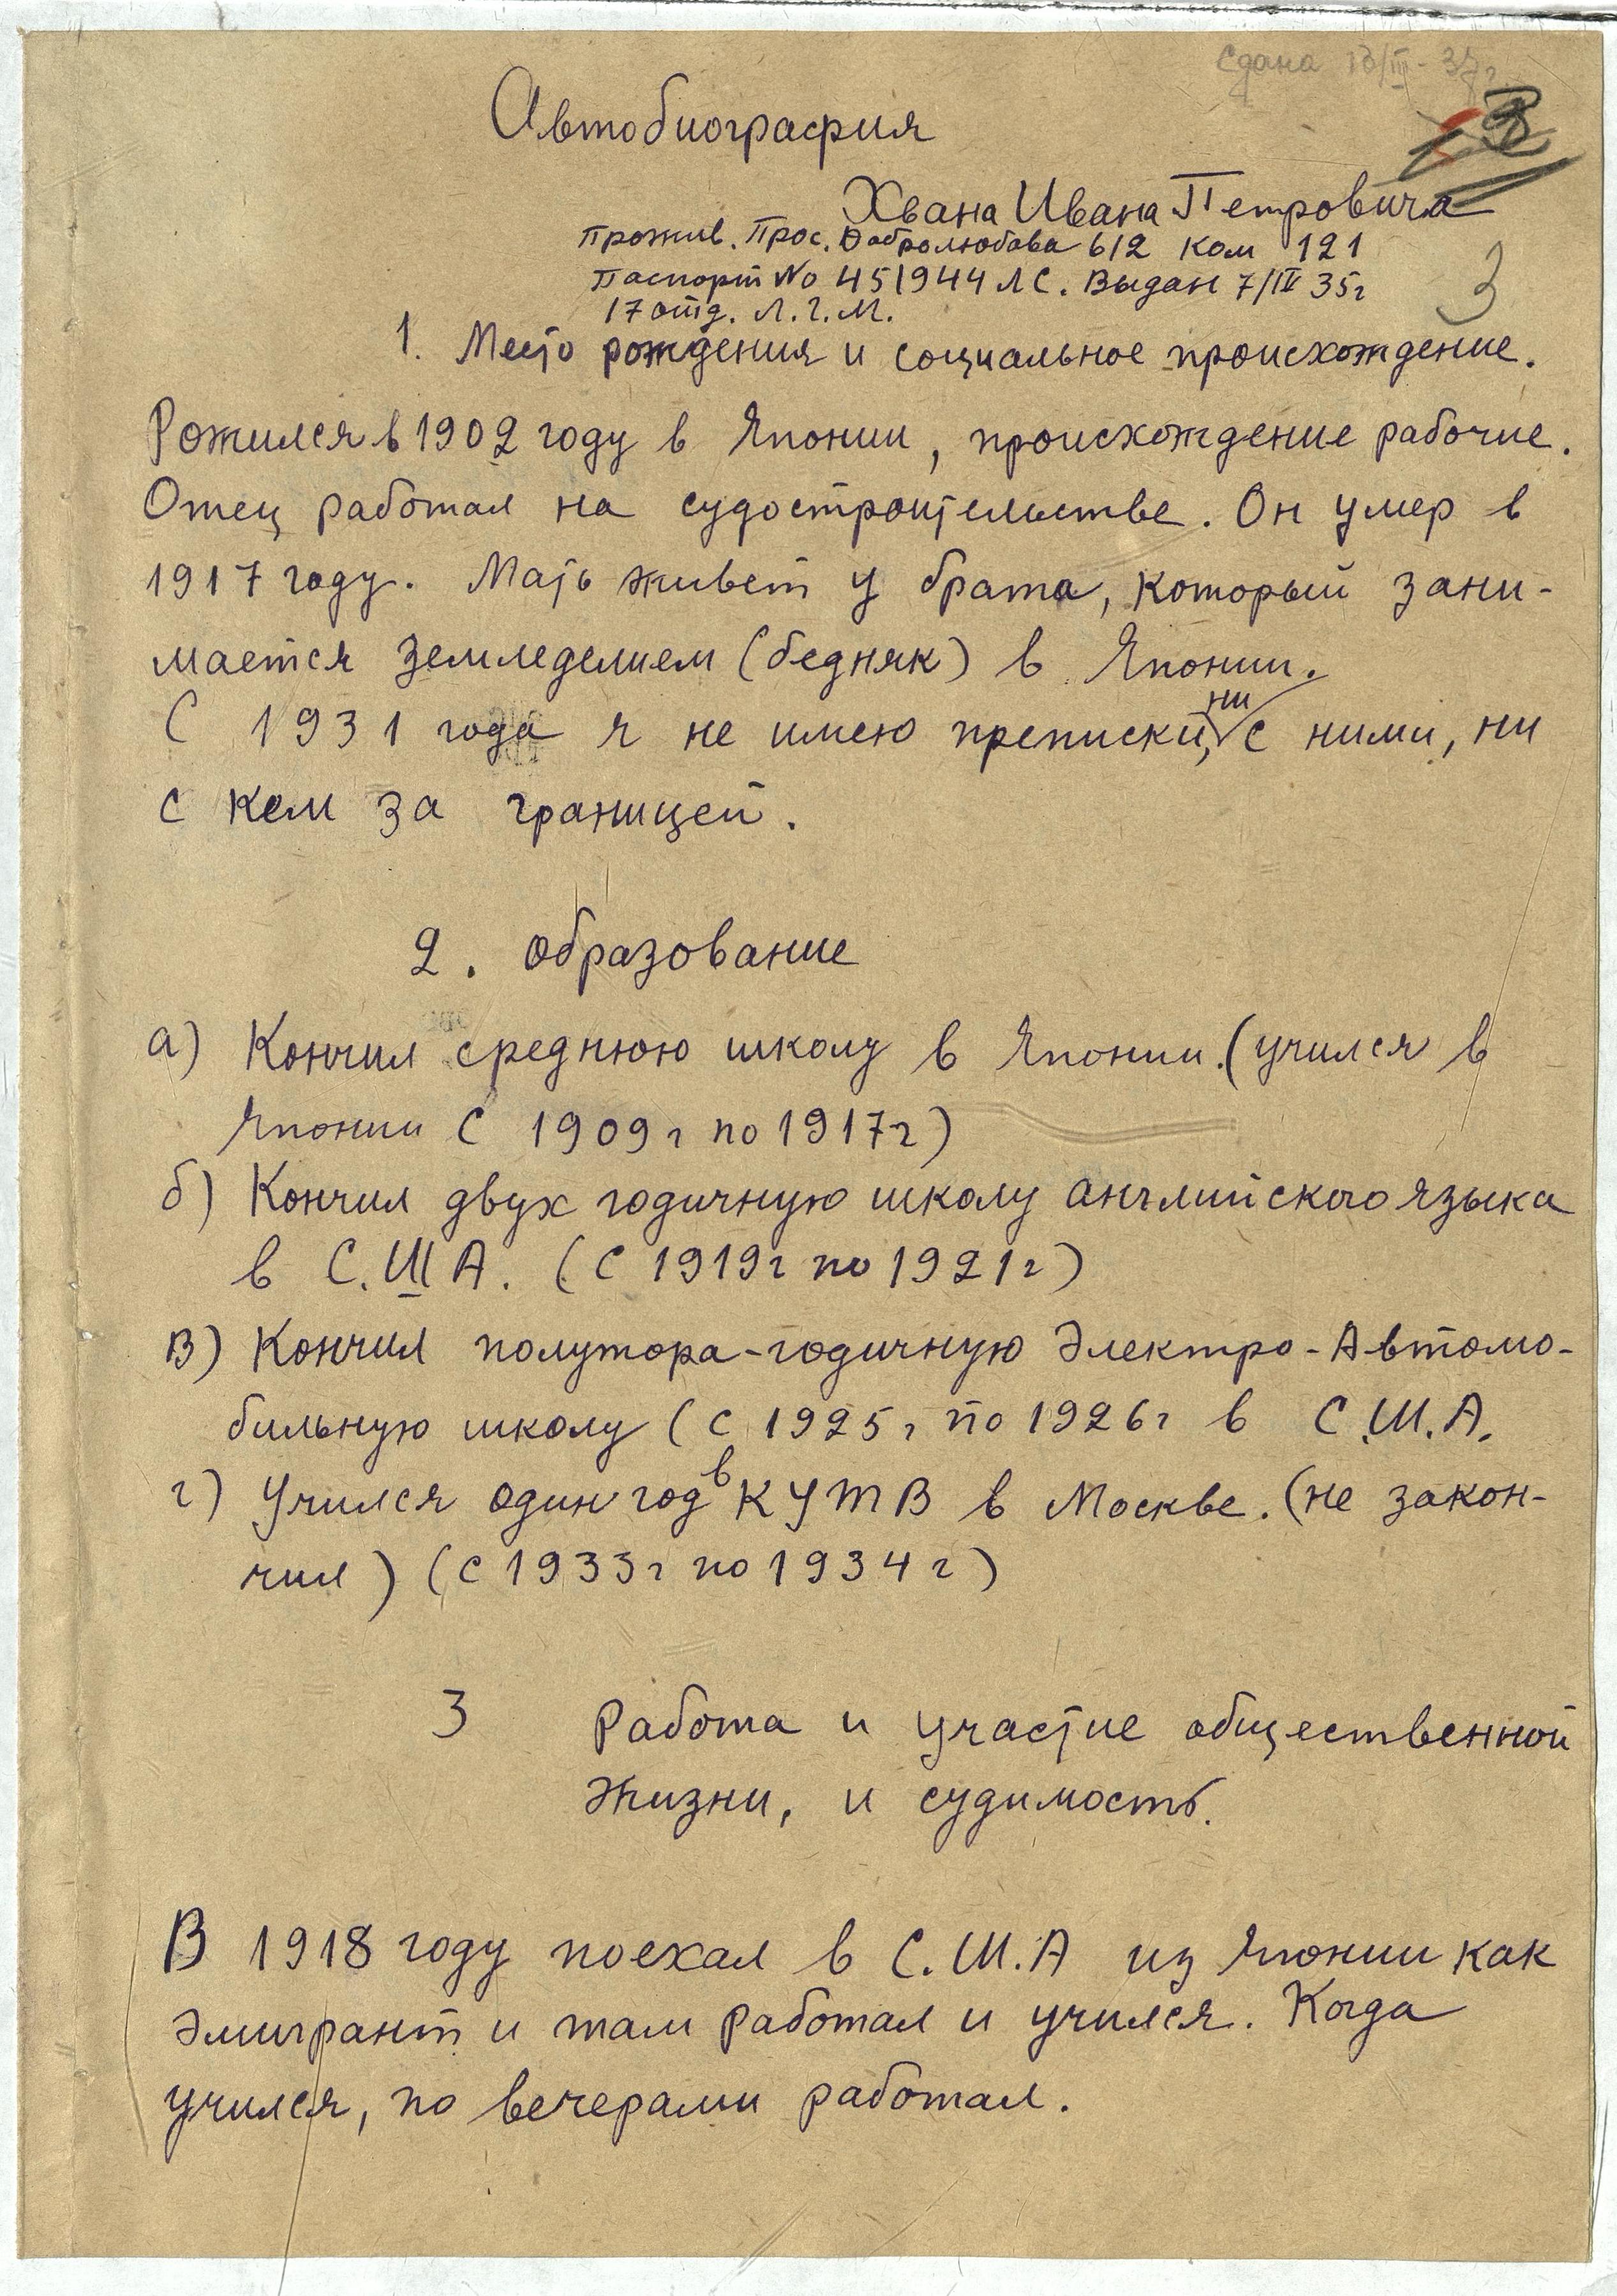 Сдана 13/III - 37г.
Автобиография
Хвана Ивана Петровича
Прожив. Прос. Добролюбова 6/2 ком 121
Паспорт No 451944 ЛС. Выдан 7/IV 35г
17 отд. Л.Г.М.
3
1. Место рождения и социальное происхождение.
Рожился в 1902 году в Японии, происхождение рабочие.
Отец работал на судостроительстве. Он умер в
1917 году. Мать живет у брата, который зани-
мается земледелием (бедняк) в Японии.
С 1931 года я не имею преписки, ни с ними, ни
с кем за границей.
2. Образование
а) Кончил среднюю школу в Японии. (учился в
Японии с 1909г по 1917г)
б) Кончил двух годичную школу английского языка
в С.Ш.А. (с 1919г по 1921г)
в) Кончил полутора-годичную Электро-Автомо-
бильную школу (с 1925г по 1926г в С.Ш.А.
г) Учился один год в КУТВ в Москве. (не закон-
чил) (с 1933г по 1934г)
3 Работа и участие общественной
жизни, и судимость.
В 1918 году поехал в С.Ш.А из Японии как
эмигрант и там работал и учился. Когда
учился, по вечерами работал.